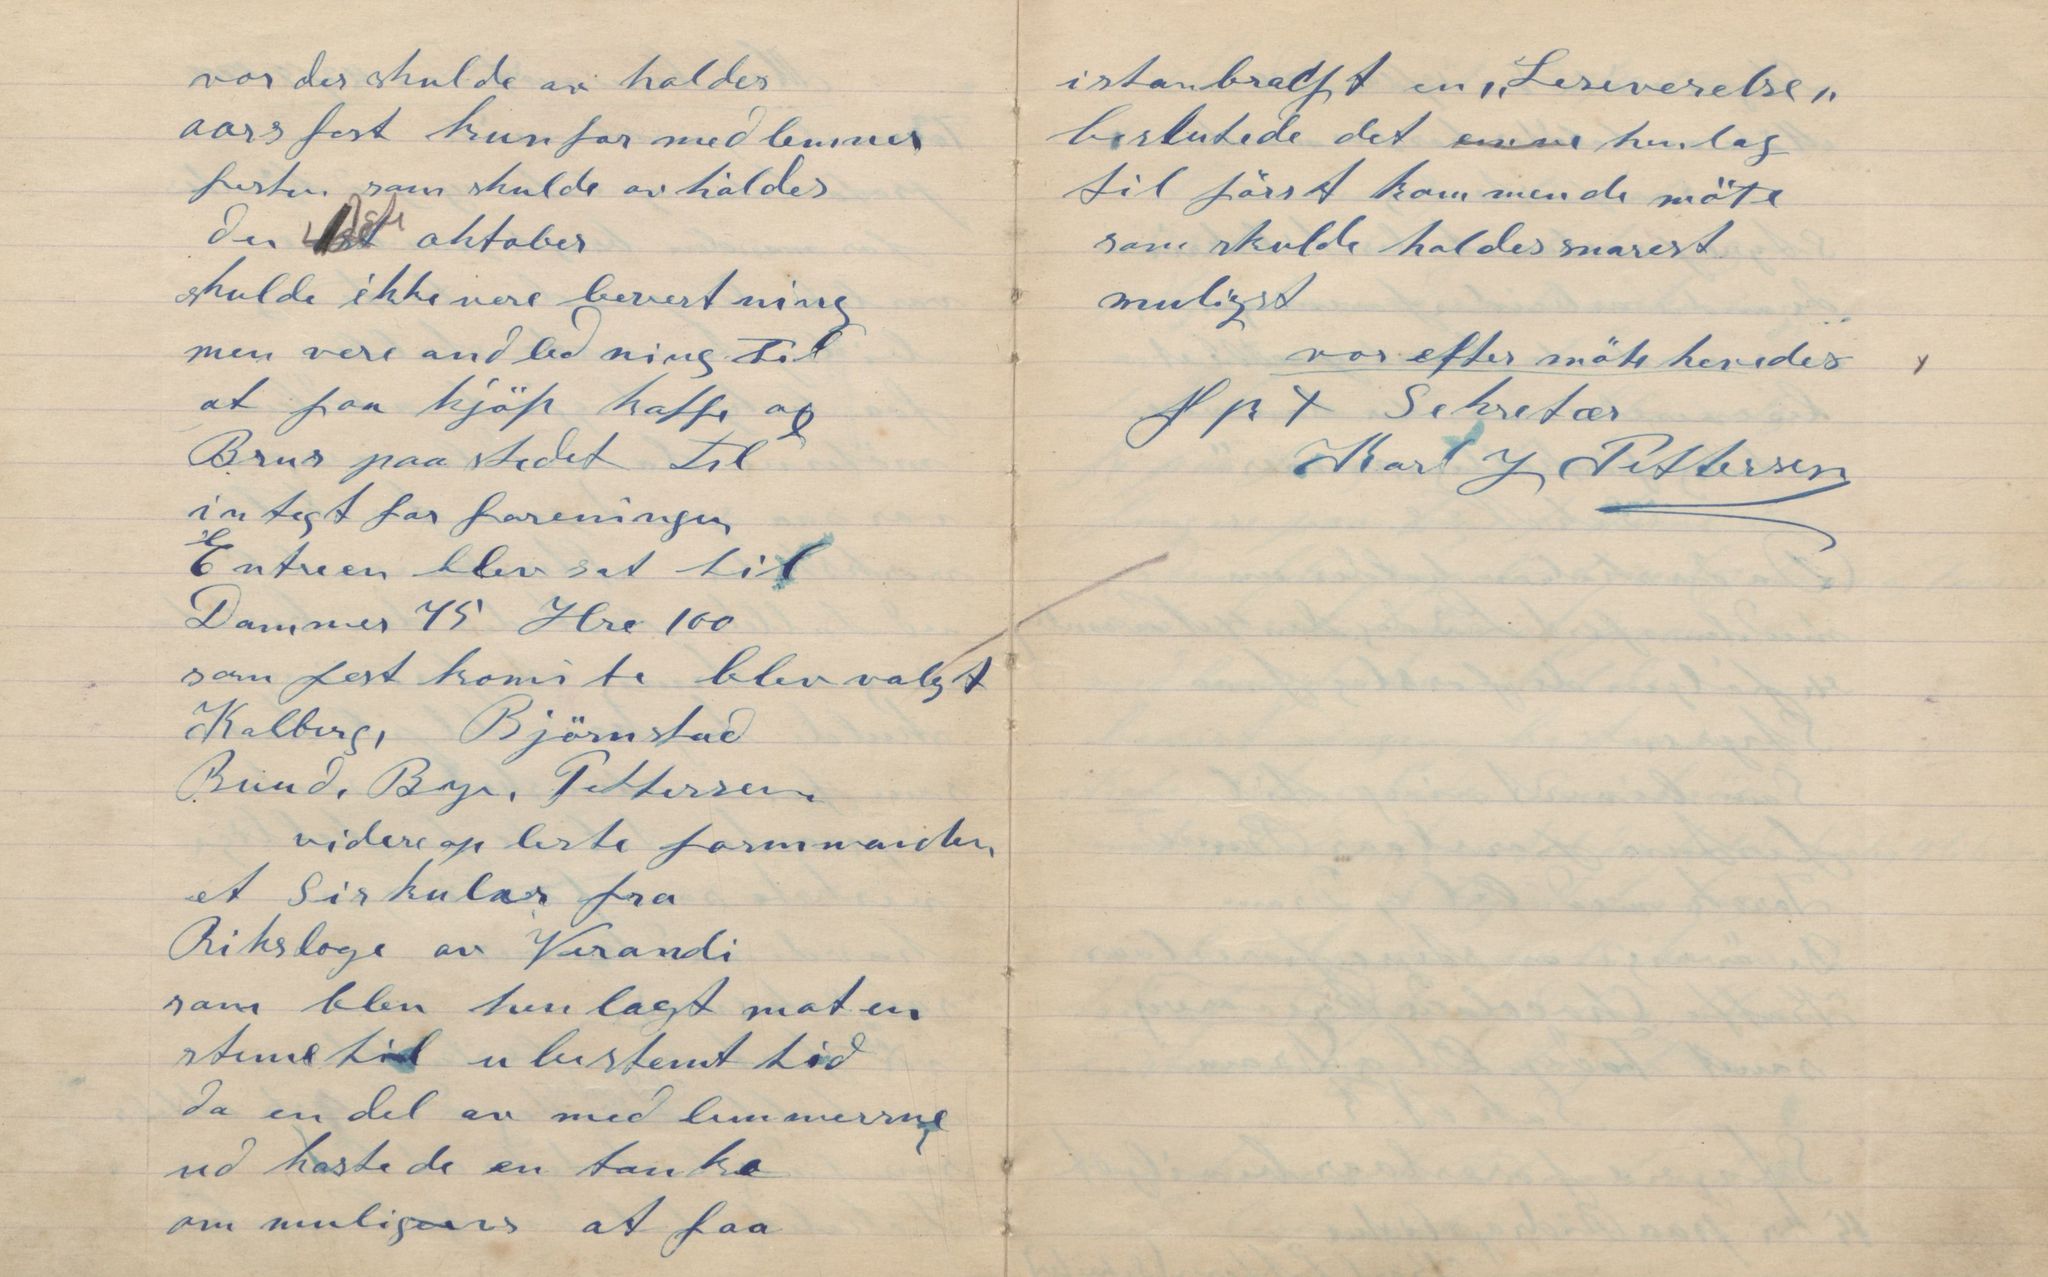 vor der skulde av holdes
aars fest kun for medlemmer
festen som skulde av holdes
den oktober
skulde ikke vere bevertning
men vere andledning til
at faa kjöpt kaffe og
Brus paa stedet til
integt for foreningen
Entreen blev sat til
Dammer 75 Hre 100
som fest komite blev valgt
Kalberg, Björnstad
Buud, Bye, Pettersen
videre op leste formmanden
et Sirkular fra
Riksloge av Verandi
som blev hen lagt mot en
steme til u bestemt tid
da en del av med lemmerne
ud kastede en tanke
om muligens at faa
istanbragt en „Leseverelse„
beslutede det henlag
til först kommende möte
som skulde holdes snarest
muligst
vor efter möte hevedes
Sekretær
Karl J Pettersen